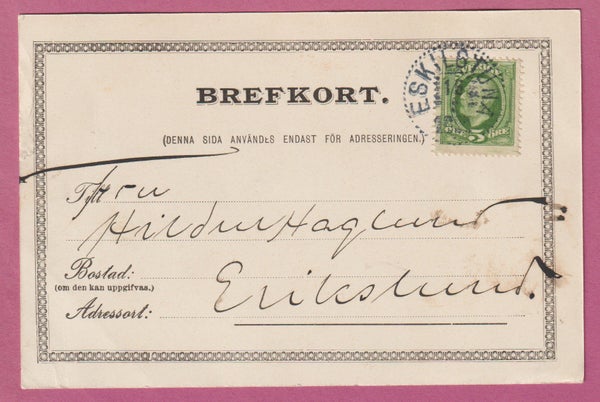 BREFKORT.
(DENNA SIDA ANVÄNDES ENDAST FÖR ADRESSERINGEN.)
ESKILSTUNA
5 ÖRE
Till Fru
Hildur Haglund
Bostad:
(om den kan uppgifvas.)
Adressort:
Erikslund.